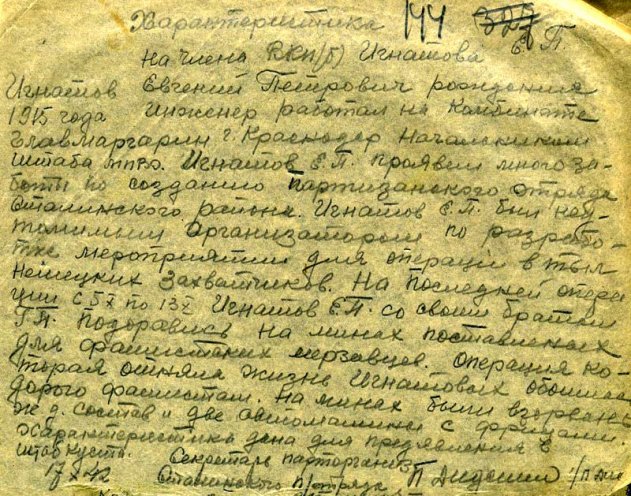 Характеристика 144 325
на члена ВКП(б) Игнатова Е. П.
Игнатов Евгений Петрович рождения
1915 года инженер работал на Комбинате
Главмаргарин г. Краснодар Начальником
штаба МПВО. Игнатов Е.П. проявил много за-
боты по созданию партизанского отряда
Сталинского района. Игнатов Е.П. был неу-
томимым организатором по разрабо-
тке мероприятий для операций в тыл
немецких захватчиков. На последней опера
ции с 5X по 13X Игнатов Е.П. со своим братом
Г.П. подорвались на минах поставленых
для фашистских мерзавцев. Операция ко-
торая отняла жизнь Игнатовых обошлась
дорого фашистам. На минах были взорваны
ж.д. состав и две автомашины с фрицами.
Характеристика дана для предъявления в
штаб куста. Секретарь парторганиз
17 X 42 Сталинского п/отряда П